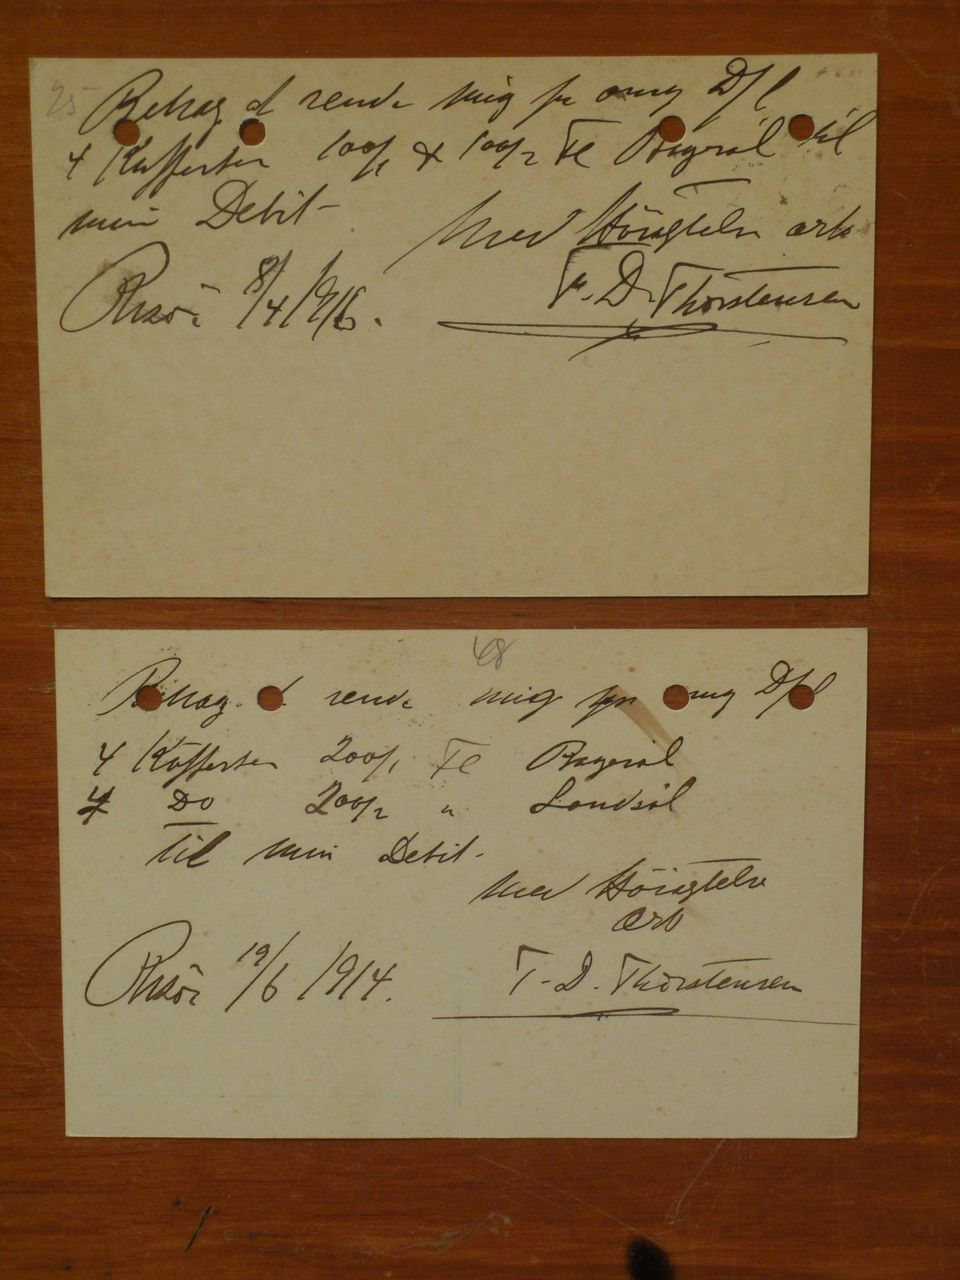 25
Behag at sende mig pr omg D/l
4 Kufferter 100/1 & 100/2 Fl Bayerøl til
min Debit -
Med Höiagtelse ærb
Risör 8/4 1916.
T. D. Thorstensen
48
Behag at sende mig pr omg D/l
4 Kufferter 200/1 Fl Bayerøl
4 Do 200/2 " Landsøl
til min Debit -
Med Höiagtelse
ærb
Risör 19/6 1914.
T. D. Thorstensen